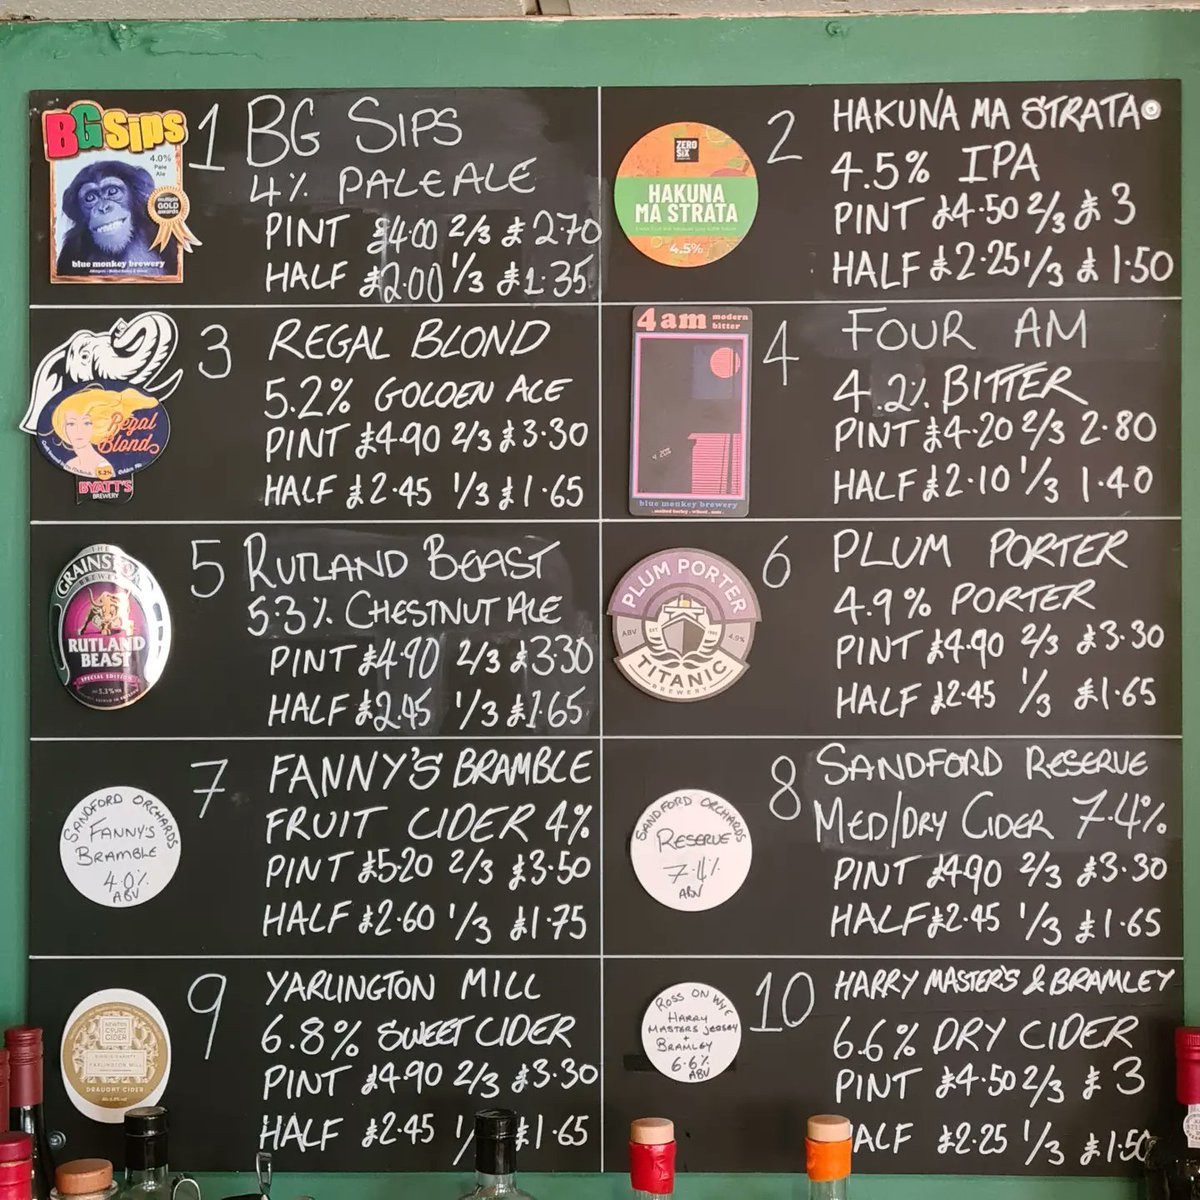 BG Sips
4.0%
Pale
Ale
multiple
GOLD
awards
blue monkey brewery
1 BG SIPS
4% PALE ALE
PINT £4.00 2/3 £2.70
HALF £2.00 1/3 £1.35
ZERO
SIX
HAKUNA
MA STRATA
4.5%
2 HAKUNA MA STRATA
4.5% IPA
PINT £4.50 2/3 £3
HALF £2.25 1/3 £1.50
Regal
Blond
5.2%
BYATT'S
BREWERY
3 REGAL BLOND
5.2% GOLDEN ALE
PINT £4.90 2/3 £3.30
HALF £2.45 1/3 £1.65
4am modern
bitter
4.2%
blue monkey brewery
4 FOUR AM
4.2% BITTER
PINT £4.20 2/3 2.80
HALF £2.10 1/3 1.40
THE
GRAINSTORE
BREWERY
RUTLAND
BEAST
SPECIAL EDITION
5.3%
5 RUTLAND BEAST
5.3% CHESTNUT ALE
PINT £4.90 2/3 £3.30
HALF £2.45 1/3 £1.65
PLUM PORTER
ABV EST 1985 4.9%
TITANIC
BREWERY
6 PLUM PORTER
4.9% PORTER
PINT £4.90 2/3 £3.30
HALF £2.45 1/3 £1.65
SANDFORD ORCHARDS
FANNY'S
BRAMBLE
4.0%
ABV
7 FANNY'S BRAMBLE
FRUIT CIDER 4%
PINT £5.20 2/3 £3.50
HALF £2.60 1/3 £1.75
SANDFORD ORCHARDS
RESERVE
7.4%
ABV
8 SANDFORD RESERVE
MED/DRY CIDER 7.4%
PINT £4.90 2/3 £3.30
HALF £2.45 1/3 £1.65
NEWTON
COURT
CIDER
YARLINGTON MILL
DRAUGHT CIDER
9 YARLINGTON MILL
6.8% SWEET CIDER
PINT £4.90 2/3 £3.30
HALF £2.45 1/ £1.65
ROSS ON WYE
HARRY
MASTERS JERSEY
+
BRAMLEY
6.6%
ABV
10 HARRY MASTER'S & BRAMLEY
6.6% DRY CIDER
PINT £4.50 2/3 £3
HALF £2.25 1/3 £1.50